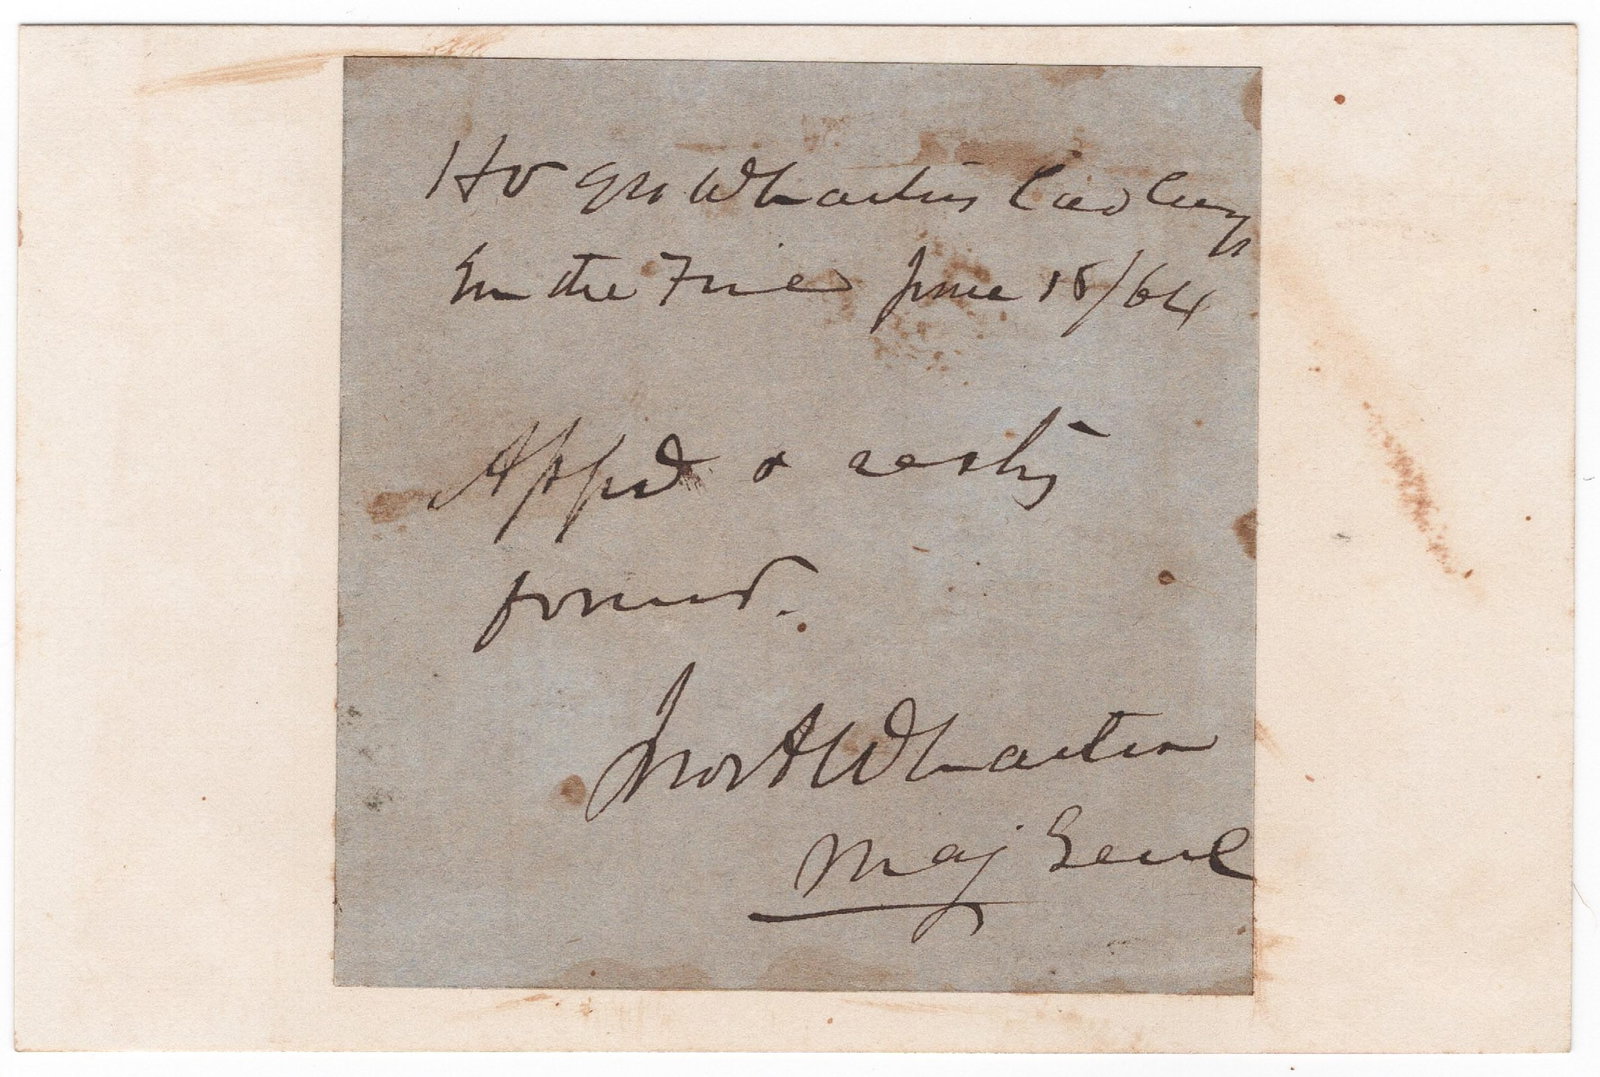 Hd Qrs Whartons Cav Corps
In the Field June 18/64
Appd & resty
forwd.
Jno A Wharton
Maj Genl